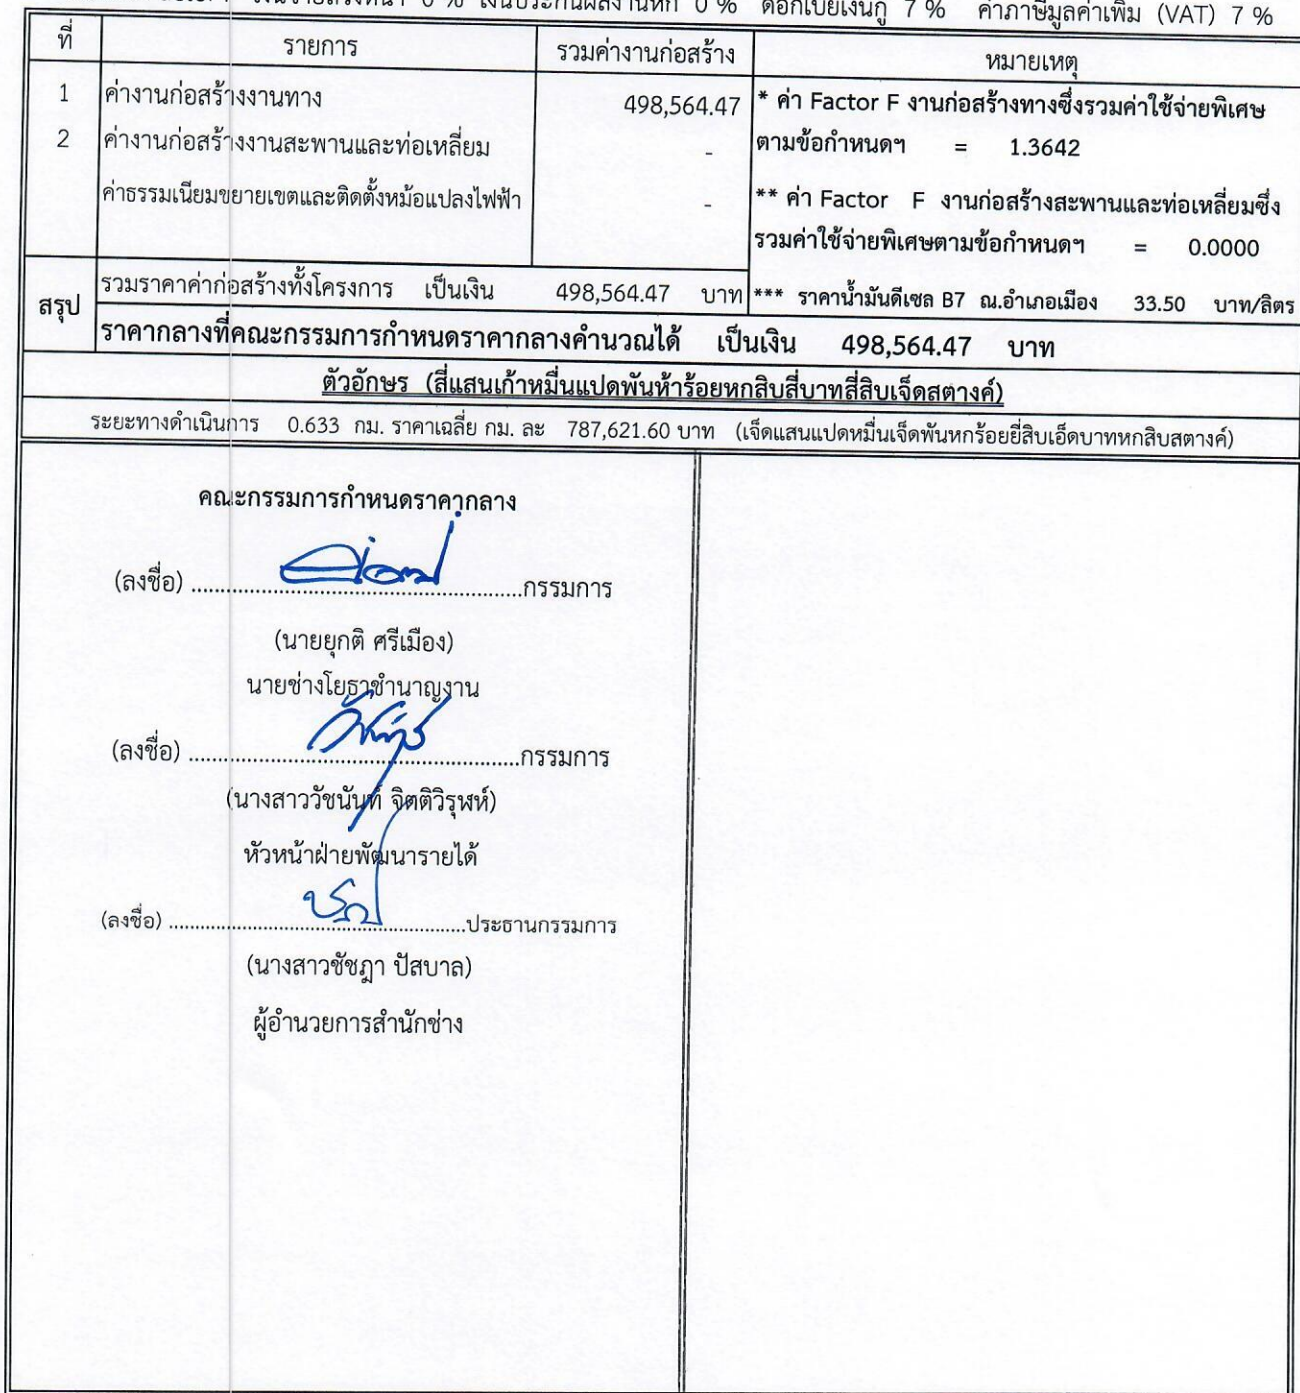 0 % เงินประกันผลงานหัก 0 % ดอกเบี้ยเงินกู้ 7 % ค่าภาษีมูลค่าเพิ่ม (VAT) 7 %
ที่ รายการ รวมค่างานก่อสร้าง หมายเหตุ
1 ค่างานก่อสร้างงานทาง 498,564.47 * ค่า Factor F งานก่อสร้างทางซึ่งรวมค่าใช้จ่ายพิเศษ
2 ค่างานก่อสร้างงานสะพานและท่อเหลี่ยม - ตามข้อกำหนดฯ = 1.3642
ค่าธรรมเนียมขยายเขตและติดตั้งหม้อแปลงไฟฟ้า - ** ค่า Factor F งานก่อสร้างสะพานและท่อเหลี่ยมซึ่ง
รวมค่าใช้จ่ายพิเศษตามข้อกำหนดฯ = 0.0000
สรุป รวมราคาค่าก่อสร้างทั้งโครงการ เป็นเงิน 498,564.47 บาท *** ราคาน้ำมันดีเซล B7 ณ.อำเภอเมือง 33.50 บาท/ลิตร
ราคากลางที่คณะกรรมการกำหนดราคากลางคำนวณได้ เป็นเงิน 498,564.47 บาท
ตัวอักษร (สี่แสนเก้าหมื่นแปดพันห้าร้อยหกสิบสี่บาทสี่สิบเจ็ดสตางค์)
ระยะทางดำเนินการ 0.633 กม. ราคาเฉลี่ย กม. ละ 787,621.60 บาท (เจ็ดแสนแปดหมื่นเจ็ดพันหกร้อยยี่สิบเอ็ดบาทหกสิบสตางค์)
คณะกรรมการกำหนดราคากลาง
(ลงชื่อ) ........................................................กรรมการ
(นายยุกติ ศรีเมือง)
นายช่างโยธาชำนาญงาน
(ลงชื่อ) ........................................................กรรมการ
(นางสาววัชนันท์ จิตติวิรุฬห์)
หัวหน้าฝ่ายพัฒนารายได้
(ลงชื่อ) ..................................................ประธานกรรมการ
(นางสาวชัชฎา ปัสบาล)
ผู้อำนวยการสำนักช่าง